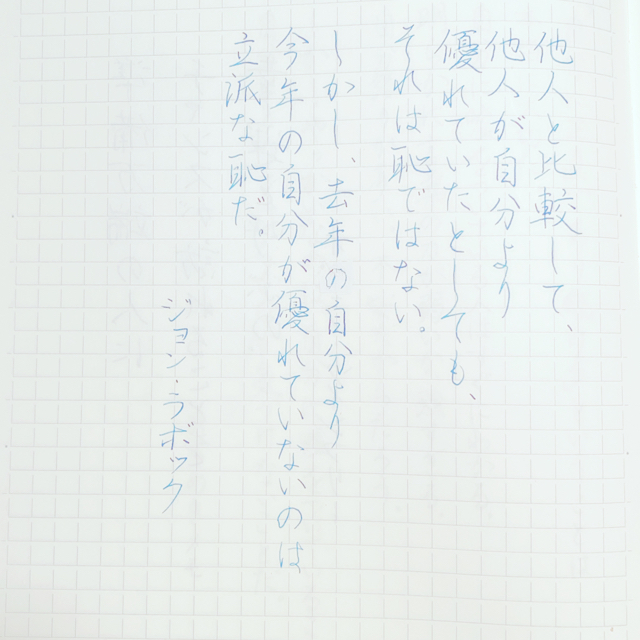 他人と比較して、
他人が自分より
優れていたとしても、
それは恥ではない。
しかし、去年の自分より
今年の自分が優れていないのは
立派な恥だ。
ジョン・ラボック